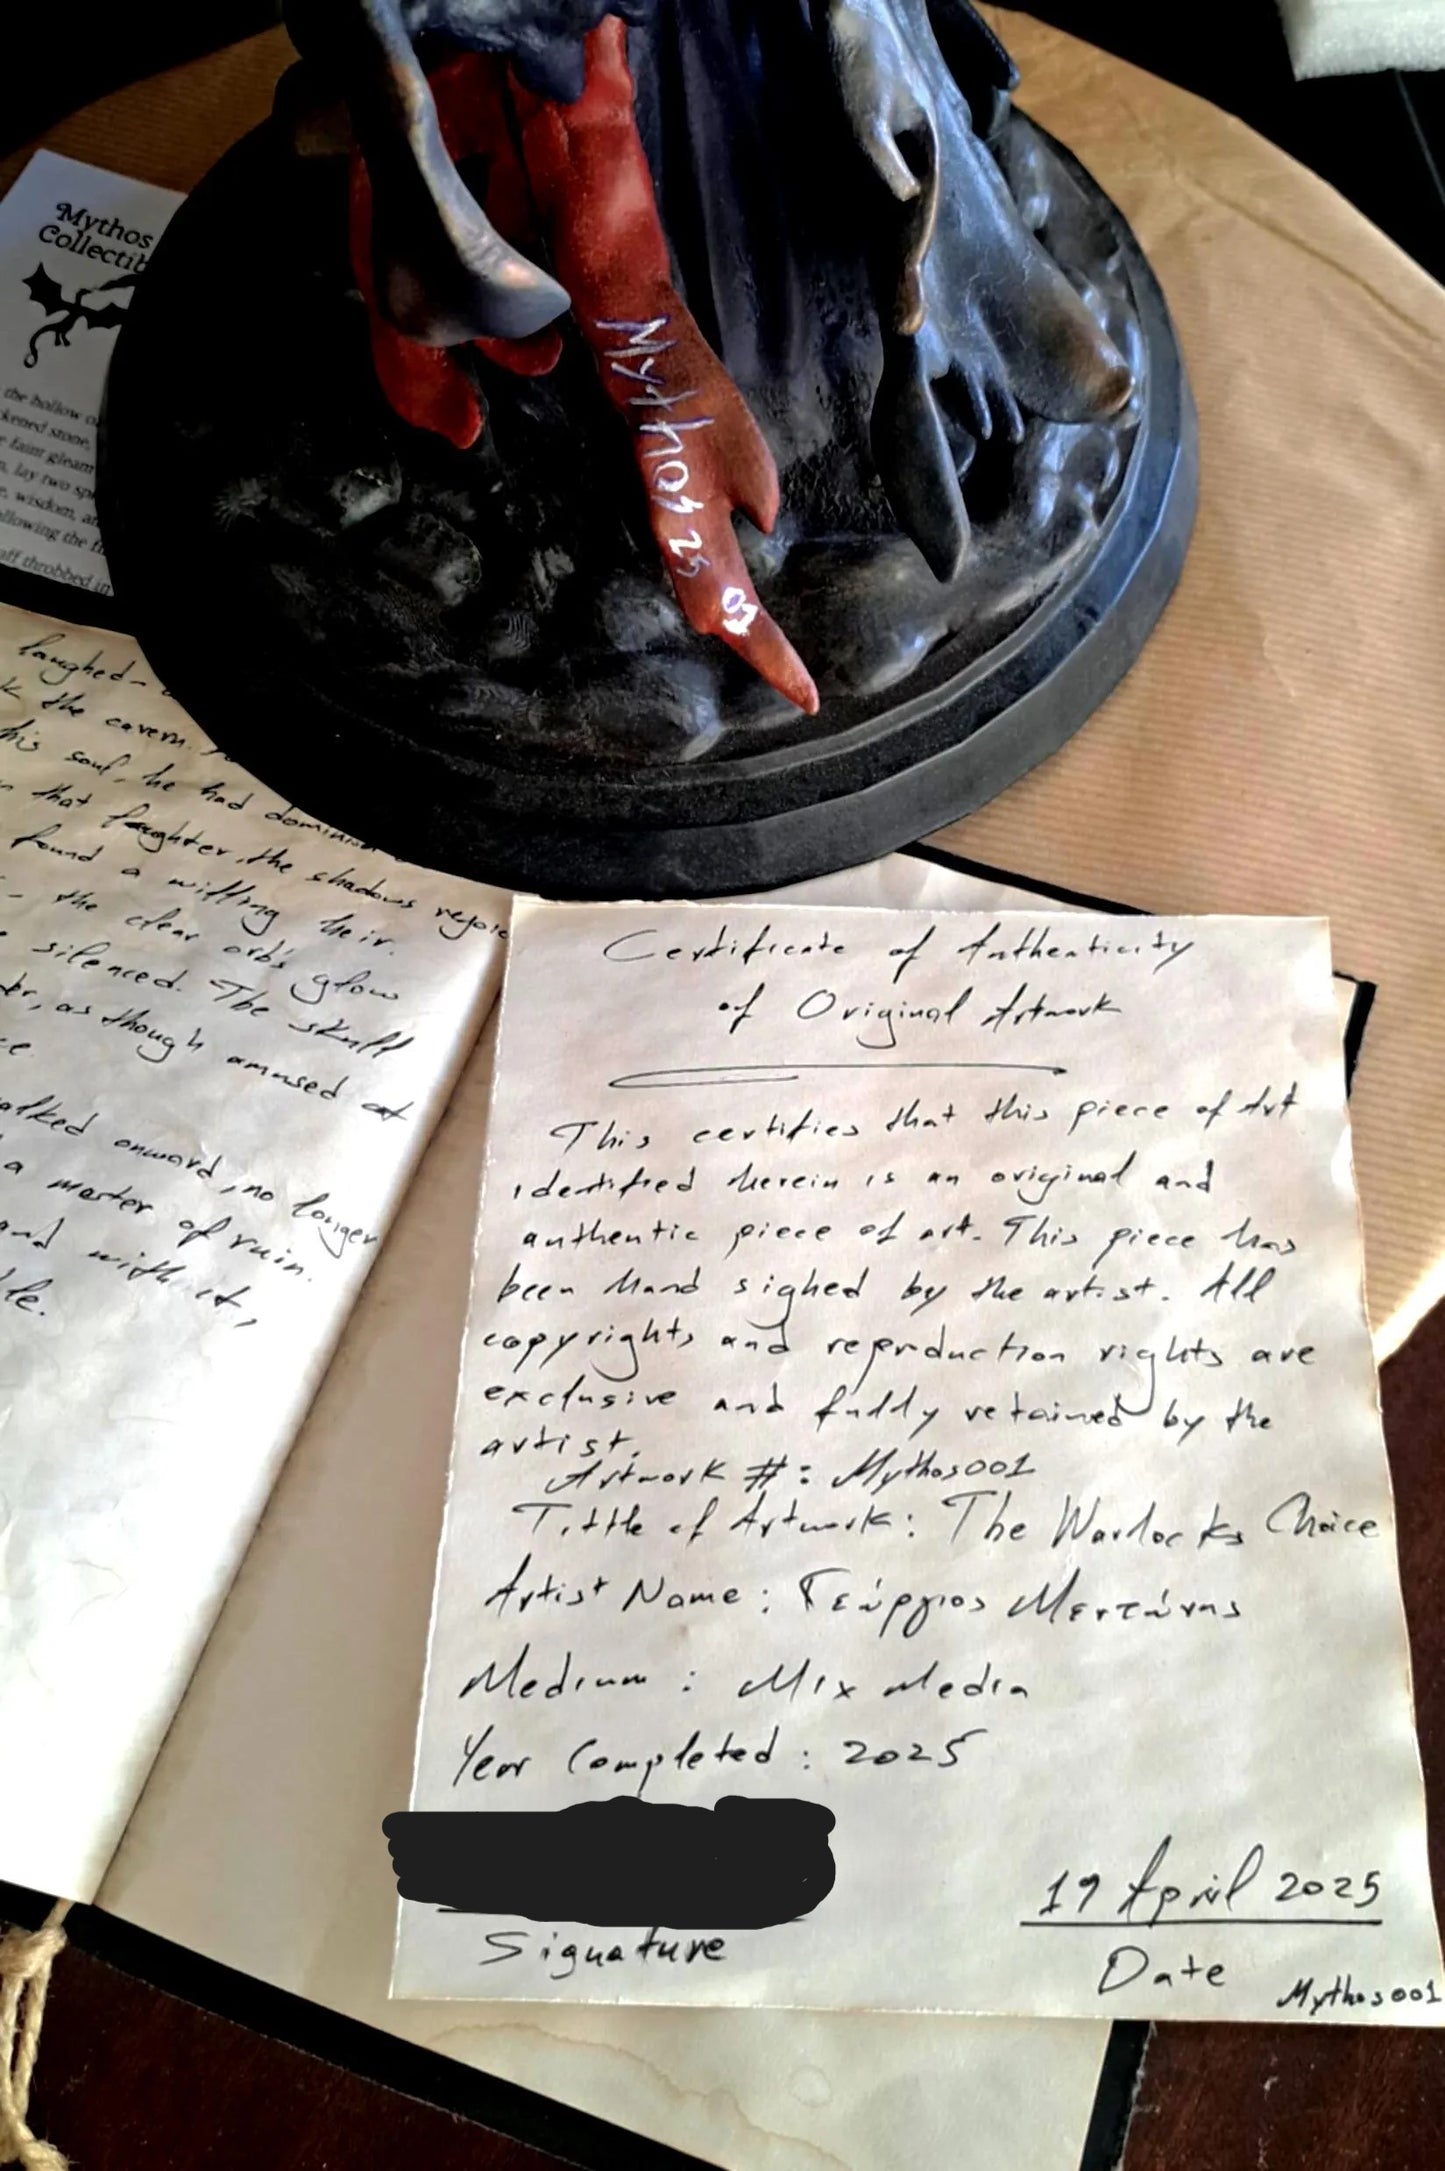 Mythos
Collectib
the hollow o
ckened stone,
faint gleam
lay two sp
wisdom, an
llowing the f
aff throbbed in
Mythos 25
01
laughed-
the cavern.
his soul, he had dominion
that laughter, the shadows rejoic
found a willing heir.
- the clear orb's glow
silenced. The skull
as though amused at
alked onward, no longer
a master of ruin.
and with it,
Certificate of Authenticity
of Original Artwork
This certifies that this piece of Art
identified herein is an original and
authentic piece of art. This piece has
been Hand sighed by the artist. All
copyrights and reproduction rights are
exclusive and fully retained by the
artist.
Artwork #: Mythos001
Tittle of Artwork: The Warlocks Choice
Artist Name: Γεώργιος
Medium: Mix Media
Year Completed: 2025
19 April 2025
Signature
Date
Mythos001